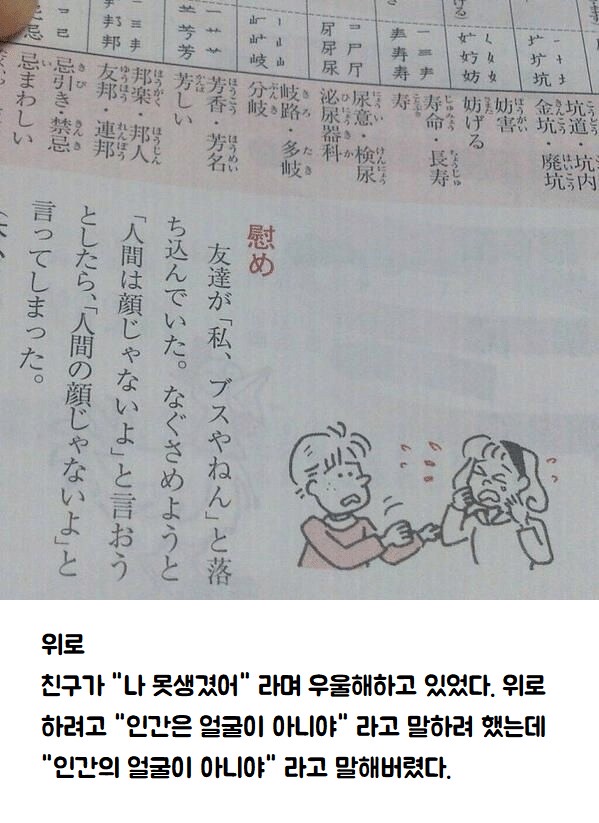 坑道・坑内
金坑・廃坑
妨害
妨げる
寿命・長寿
寿
尿意・検尿
泌尿器科
岐路・多岐
分岐
芳香・芳名
芳しい
邦楽・邦人
友邦・連邦
忌引き・禁忌
忌まわしい
慰め
友達が「私、ブスやねん」と落
ち込んでいた。なぐさめようと
「人間は顔じゃないよ」と言おう
としたら、「人間の顔じゃないよ」と
言ってしまった。
위로
친구가 "나 못생겼어" 라며 우울해하고 있었다. 위로
하려고 "인간은 얼굴이 아니야" 라고 말하려 했는데
"인간의 얼굴이 아니야" 라고 말해버렸다.